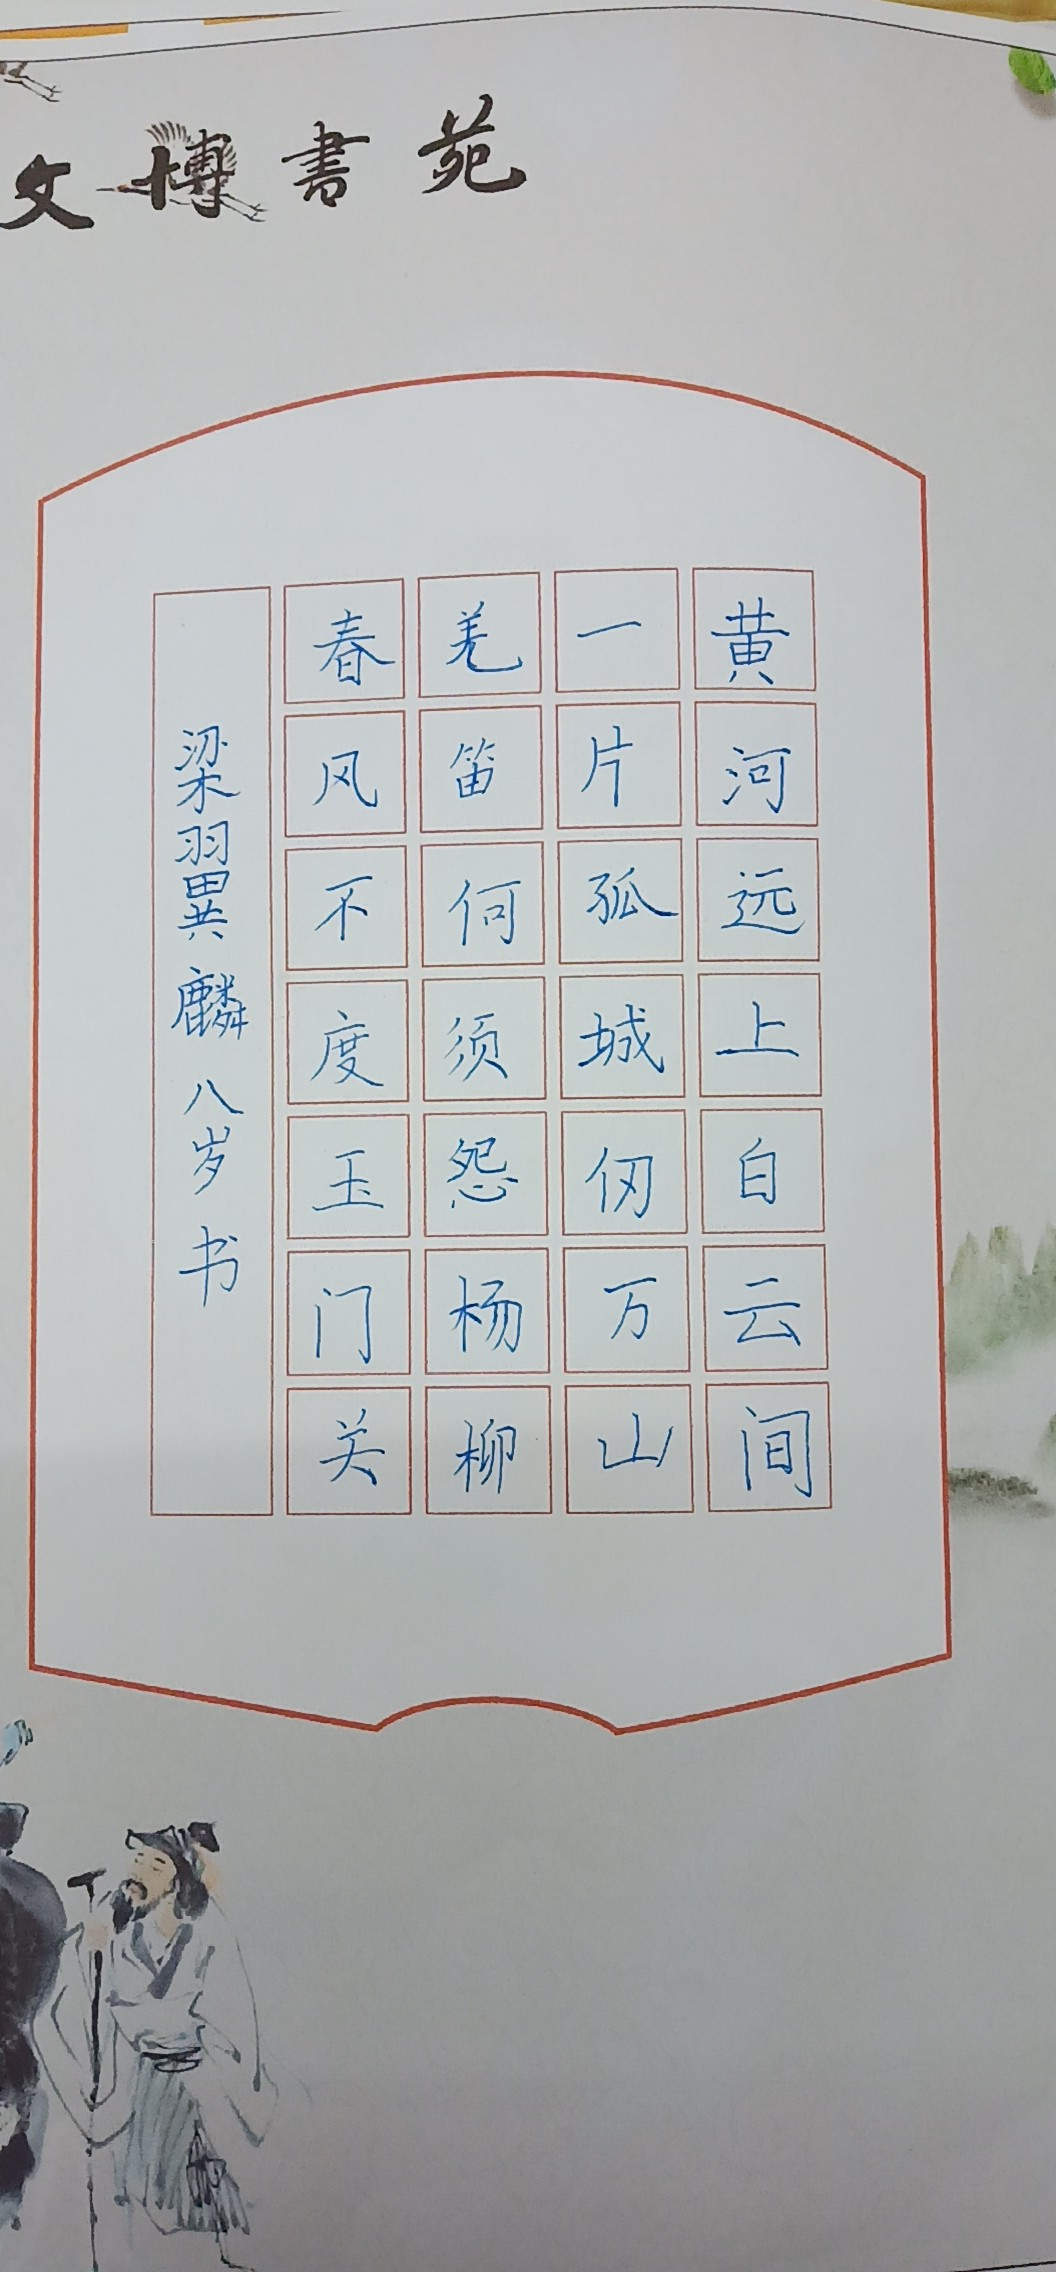 文博書苑
黄河远上白云间
一片孤城仞万山
羌笛何须怨杨柳
春风不度玉门关
梁翼麟 八岁 书